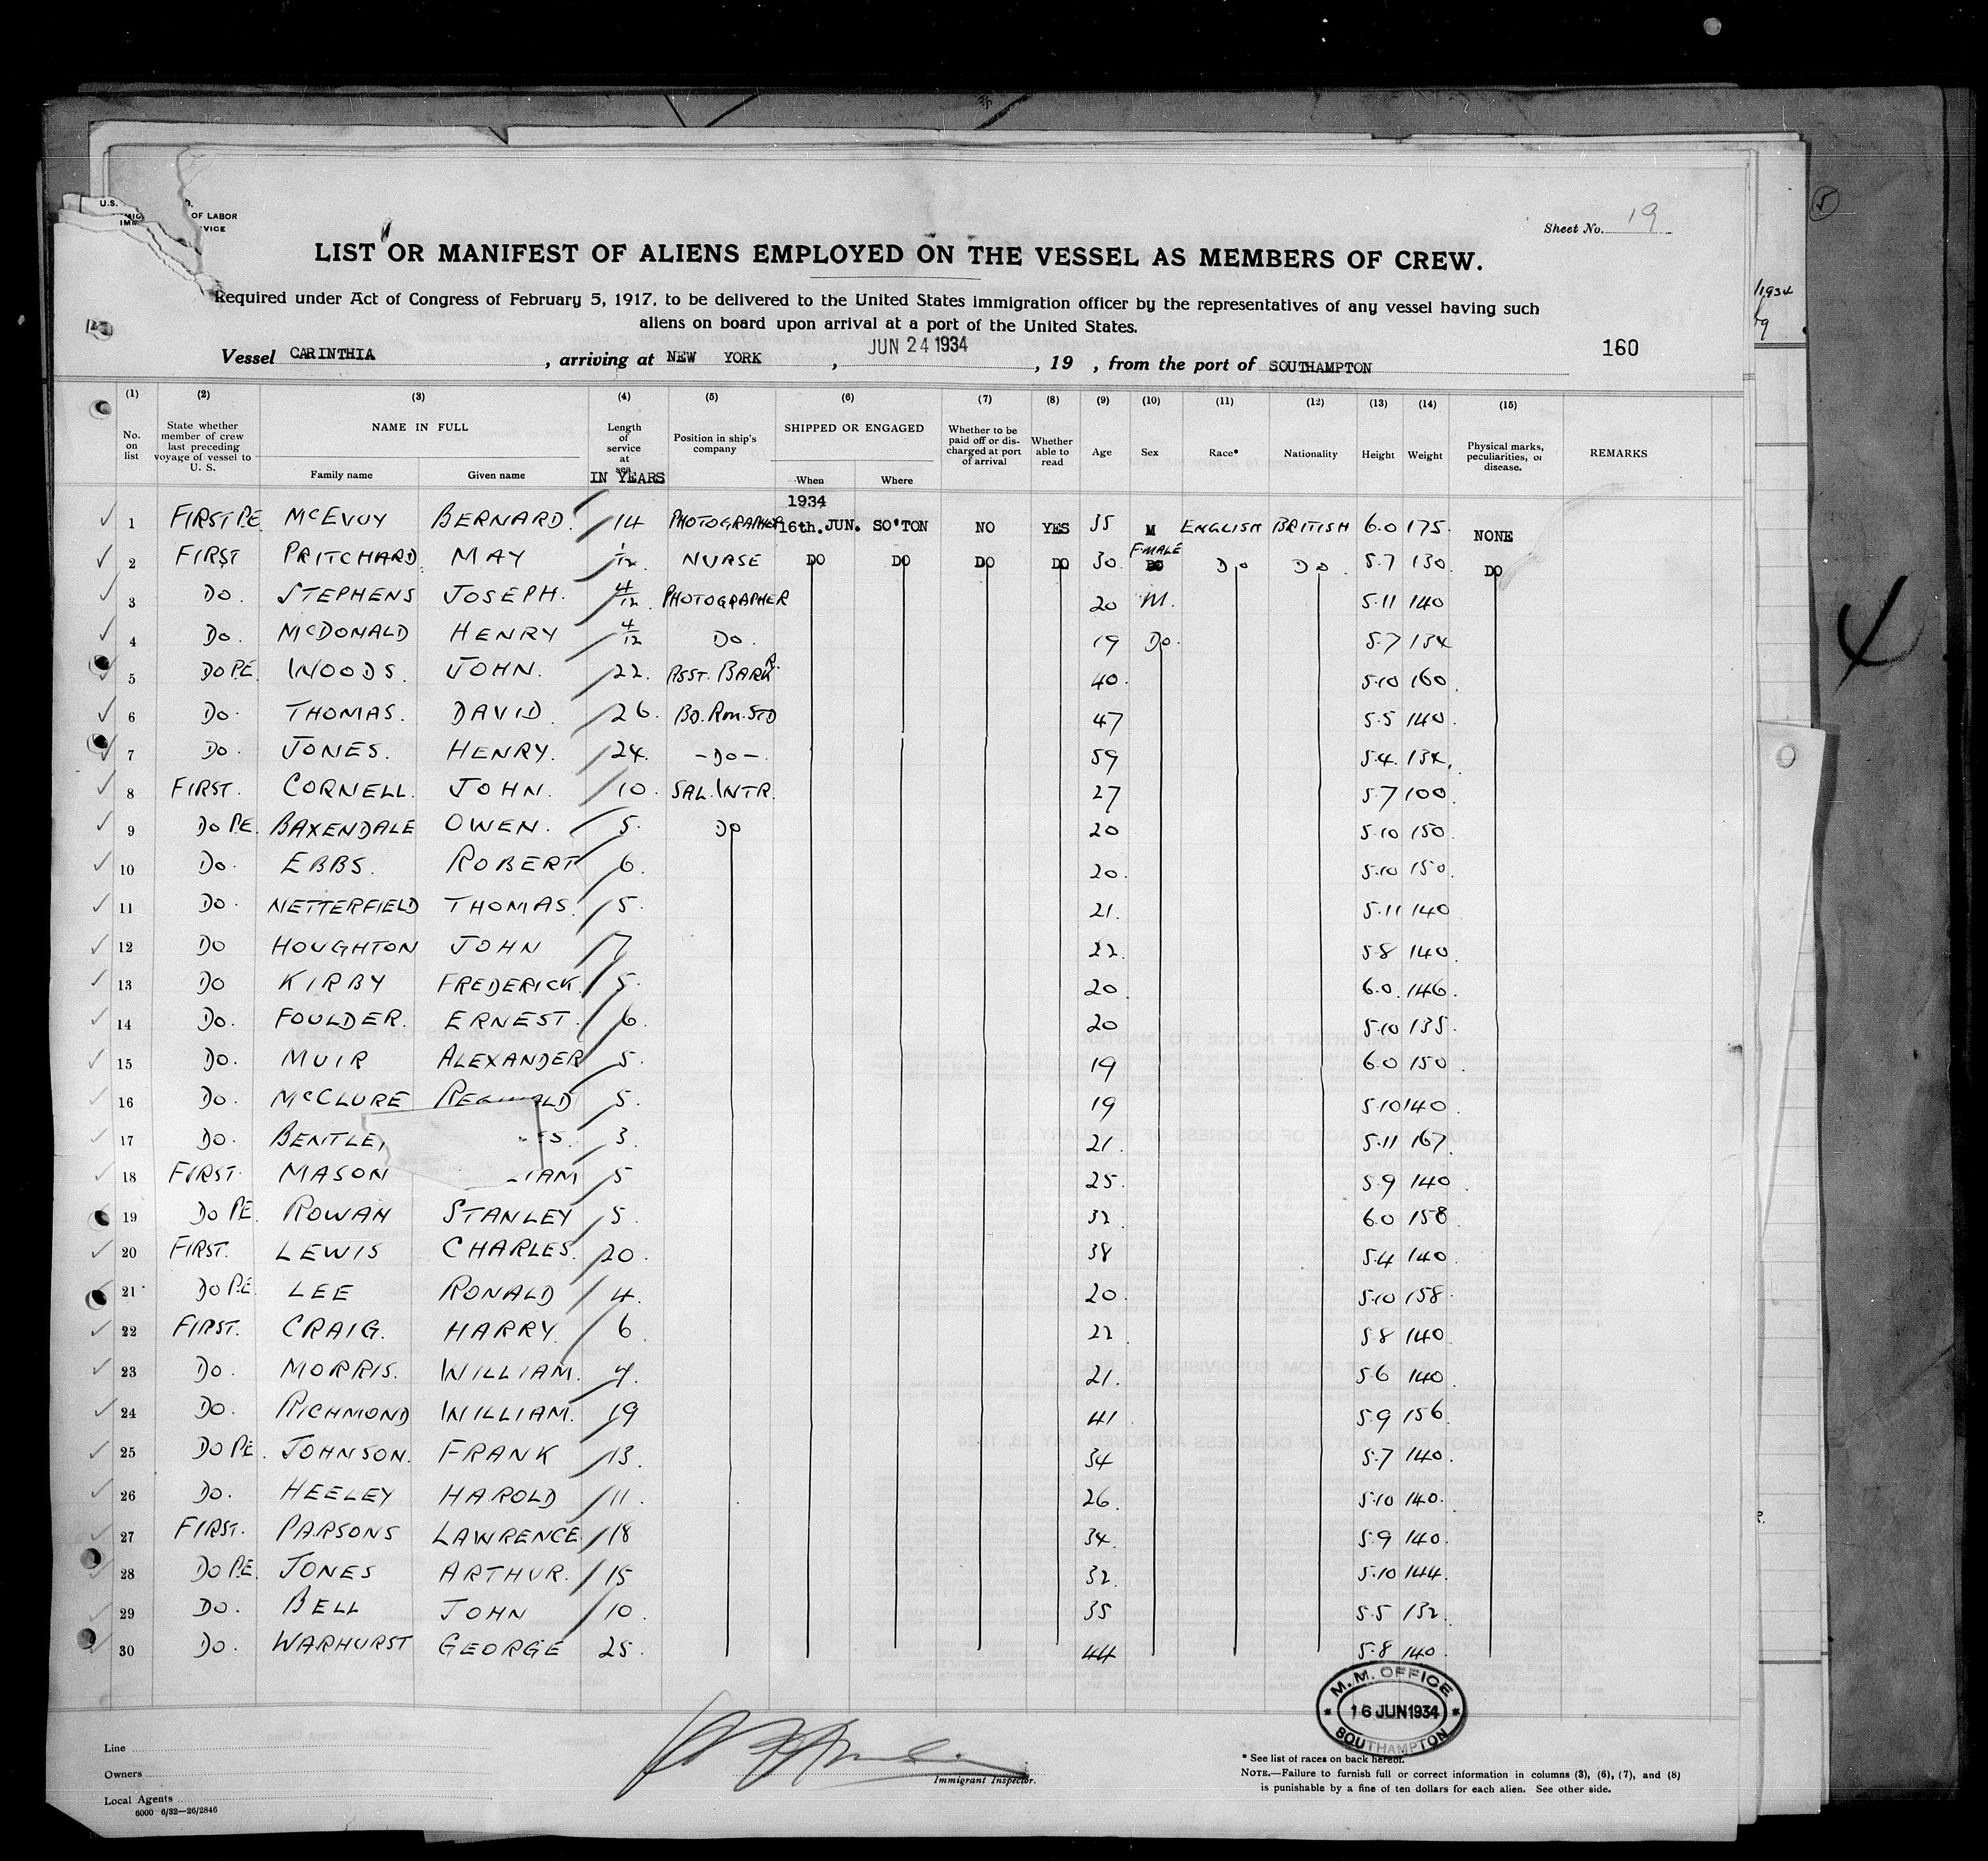 U.S. OF LABOR
VICE
Sheet No. 19
LIST OR MANIFEST OF ALIENS EMPLOYED ON THE VESSEL AS MEMBERS OF CREW.
Required under Act of Congress of February 5, 1917, to be delivered to the United States immigration officer by the representatives of any vessel having such
aliens on board upon arrival at a port of the United States.
Vessel CARINTHIA, arriving at NEW YORK, JUN 24 1934, 19 , from the port of SOUTHAMPTON
160
(1) (2) (3) (4) (5) (6) (7) (8) (9) (10) (11) (12) (13) (14) (15)
No. on list
State whether member of crew last preceding voyage of vessel to U. S.
NAME IN FULL
Family name Given name
Length of service at sea IN YEARS
Position in ship's company
SHIPPED OR ENGAGED
When Where
Whether to be paid off or discharged at port of arrival
Whether able to read
Age Sex Race* Nationality Height Weight
Physical marks, peculiarities, or disease.
REMARKS
1934
1 FIRST P.E. McEVOY BERNARD. 14 PHOTOGRAPHER 16th. JUN. SO'TON NO YES 35 M ENGLISH BRITISH 6.0 175. NONE
2 FIRST PRITCHARD. MAY 1/12. NURSE DO DO DO DO 30. FMALE Do Do. 5.7 130. DO
3 Do. STEPHENS JOSEPH. 4/12. PHOTOGRAPHER 20 M. 5.11 140
4 Do. McDONALD HENRY 4/12 Do. 19 Do. 5.7 134
5 Do P.E. WOODS. JOHN. 22. ASST. BARKR. 40. 5.10 160.
6 Do. THOMAS. DAVID. 26. BD. RM. STD 47 5.5 140.
7 Do. JONES. HENRY. 24. -Do-. 59 5.4. 134.
8 FIRST. CORNELL. JOHN. 10. SAL. WTR. 27 5.7 100.
9 Do P.E. BAXENDALE OWEN. 5. Do 20 5.10 150.
10 Do. EBBS. ROBERT 6. 20. 5.10 150.
11 Do. NETTERFIELD THOMAS. 5. 21. 5.11 140
12 Do HOUGHTON JOHN 7 22. 5.8 140.
13 Do KIRBY FREDERICK. 5. 20. 6.0. 146.
14 Do. FOULDER. ERNEST. 6. 20 5.10 135.
15 Do. MUIR ALEXANDER 5. 19 6.0 150.
16 Do. McCLURE 5. 19 5.10 140.
17 Do. 3. 21. 5.11 167.
18 FIRST. MASON 5 25. 5.9 140.
19 Do P.E. ROWAN STANLEY 5. 32. 6.0 158.
20 FIRST. LEWIS CHARLES. 20. 38 5.4 140.
21 Do P.E. LEE RONALD 4. 20. 5.10 158.
22 FIRST. CRAIG. HARRY. 6. 22. 5.8 140.
23 Do. MORRIS. WILLIAM. 4. 21. 5.6 140.
24 Do. RICHMOND WILLIAM. 19 41. 5.9 156.
25 Do P.E. JOHNSON. FRANK 13. 34 5.7 140.
26 Do. HEELEY HAROLD 11. 26. 5.10 140.
27 FIRST. PARSONS LAWRENCE. 18 34. 5.9 140.
28 Do P.E. JONES ARTHUR. 15 32. 5.10 144.
29 Do. BELL JOHN 10. 35 5.5 132.
30 Do. WARHURST GEORGE 25. 44 5.8 140.
M. M. OFFICE
16 JUN 1934
SOUTHAMPTON
Line
Owners
Local Agents
6000 6/32—26/2846
Immigrant Inspector.
* See list of races on back hereof.
NOTE.—Failure to furnish full or correct information in columns (3), (6), (7), and (8)
is punishable by a fine of ten dollars for each alien. See other side.